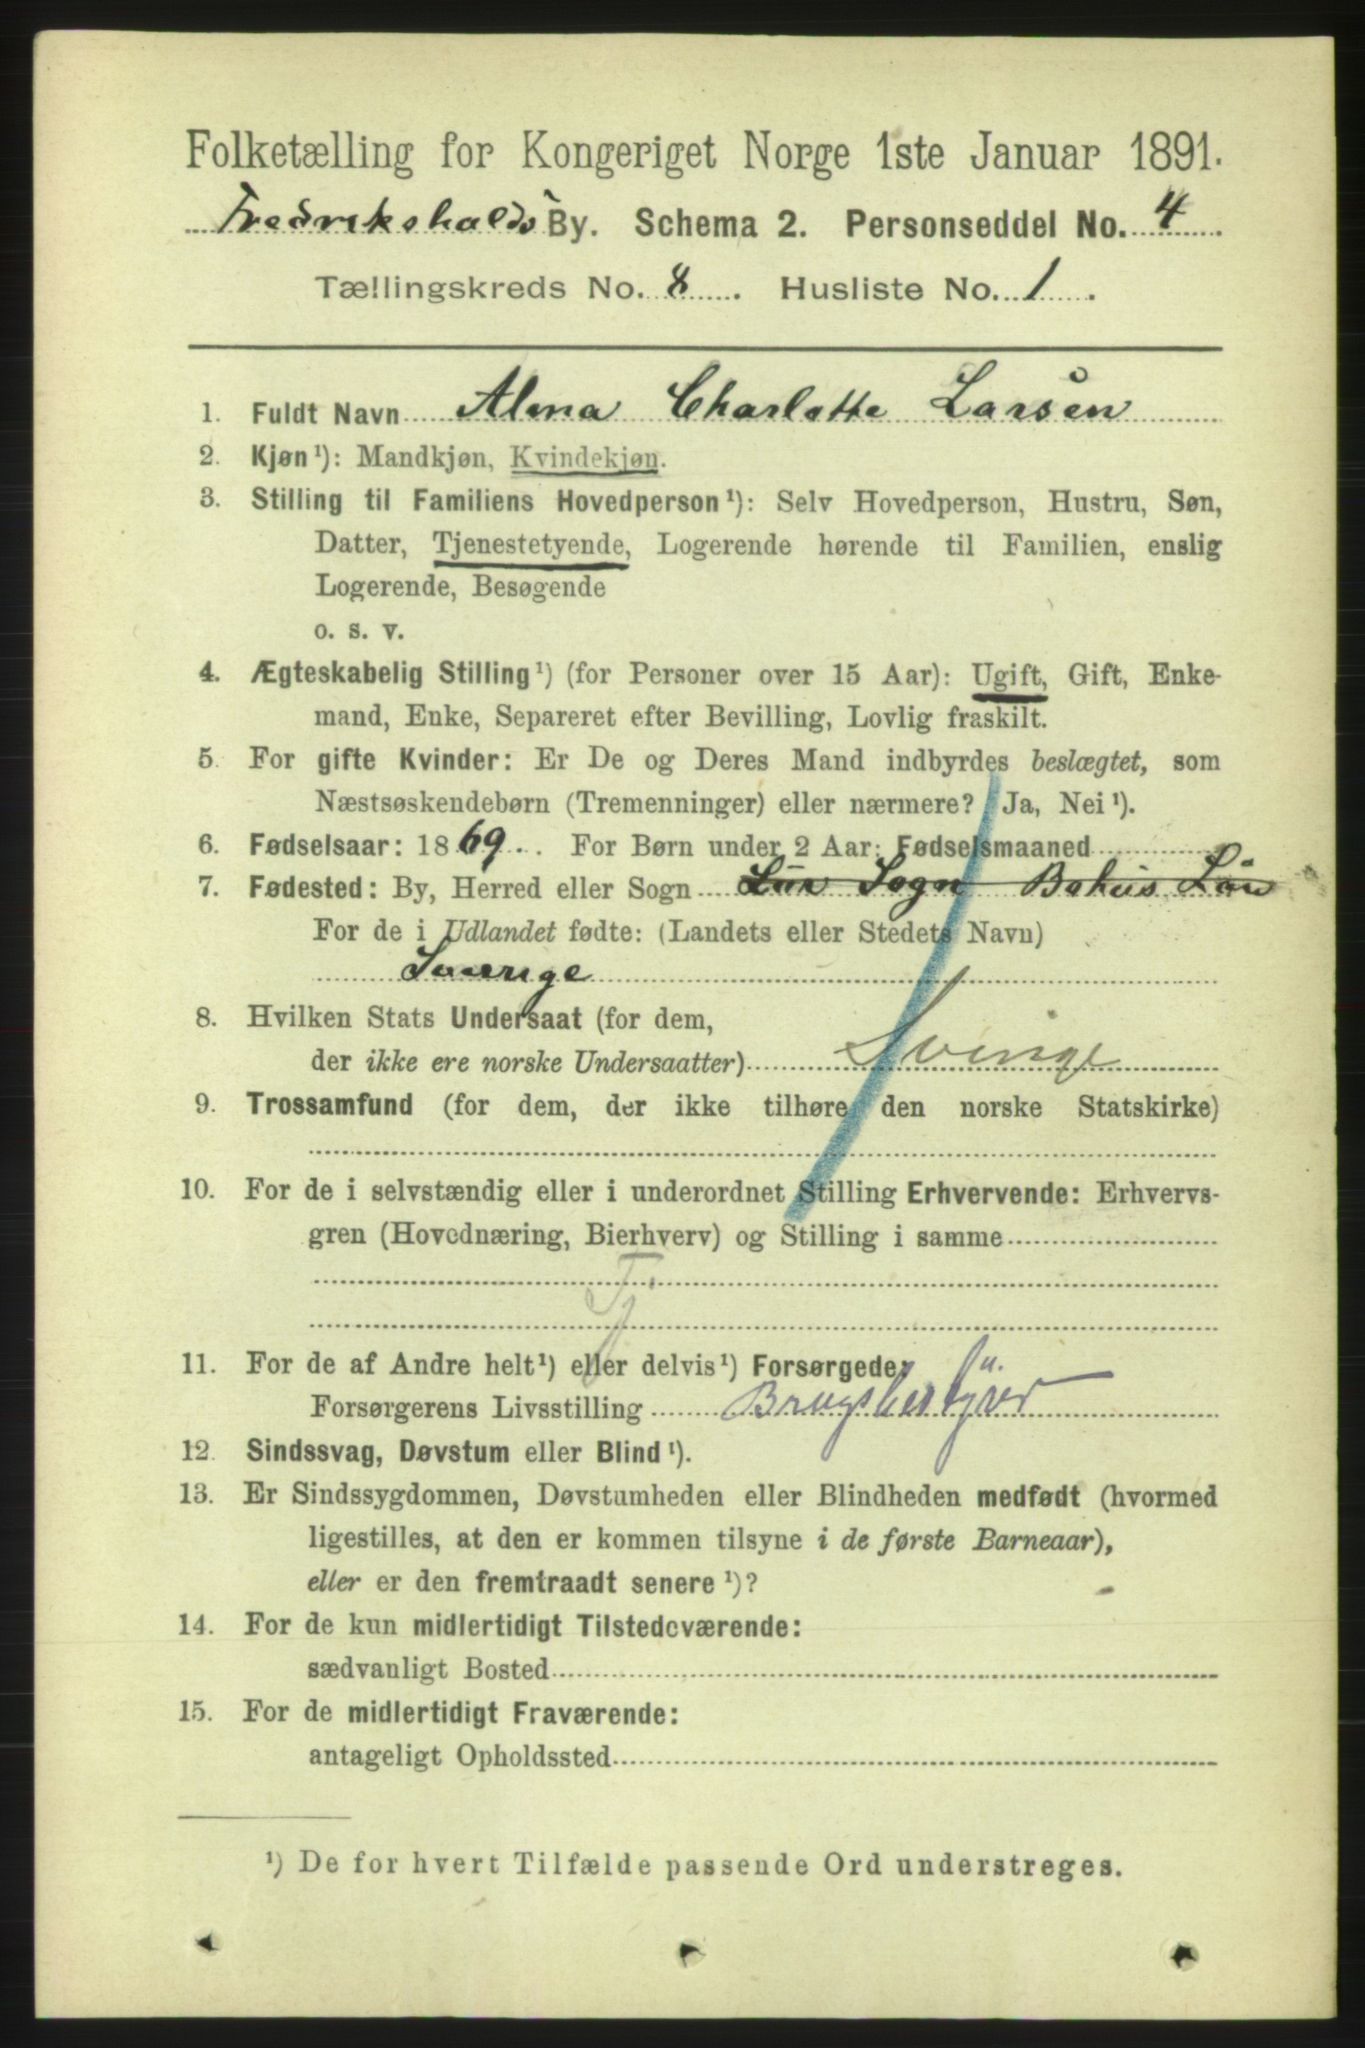 Folketælling for Kongeriget Norge 1ste Januar 1891.
Fredrikshalds By. Schema 2. Personseddel No. 4.
Tællingskreds No. 8. Husliste No. 1.
1. Fuldt Navn Alma Charlotte Larsen
2. Kjøn¹): Mandkjøn, Kvindekjøn.
3. Stilling til Familiens Hovedperson¹): Selv Hovedperson, Hustru, Søn,
Datter, Tjenestetyende, Logerende hørende til Familien, enslig
Logerende, Besøgende
o. s. v.
4. Ægteskabelig Stilling¹) (for Personer over 15 Aar): Ugift, Gift, Enke-
mand, Enke, Separeret efter Bevilling, Lovlig fraskilt.
5. For gifte Kvinder: Er De og Deres Mand indbyrdes beslægtet, som
Næstsøskendebørn (Tremenninger) eller nærmere? Ja, Nei¹).
6. Fødselsaar: 1869. For Børn under 2 Aar: Fødselsmaaned
7. Fødested: By, Herred eller Sogn Lur Sogn Bohus Län
For de i Udlandet fødte: (Landets eller Stedets Navn)
Sverige
8. Hvilken Stats Undersaat (for dem,
der ikke ere norske Undersaatter) Sverige
9. Trossamfund (for dem, der ikke tilhøre den norske Statskirke)
10. For de i selvstændig eller i underordnet Stilling Erhvervende: Erhvervs-
gren (Hovednæring, Bierhverv) og Stilling i samme
Tj
11. For de af Andre helt¹) eller delvis¹) Forsørgede:
Forsørgerens Livsstilling Brugsbestyrer
12. Sindssvag, Døvstum eller Blind¹).
13. Er Sindssygdommen, Døvstumheden eller Blindheden medfødt (hvormed
ligestilles, at den er kommen tilsyne i de første Barneaar),
eller er den fremtraadt senere¹)?
14. For de kun midlertidigt Tilstedeværende:
sædvanligt Bosted
15. For de midlertidigt Fraværende:
antageligt Opholdssted
¹) De for hvert Tilfælde passende Ord understreges.